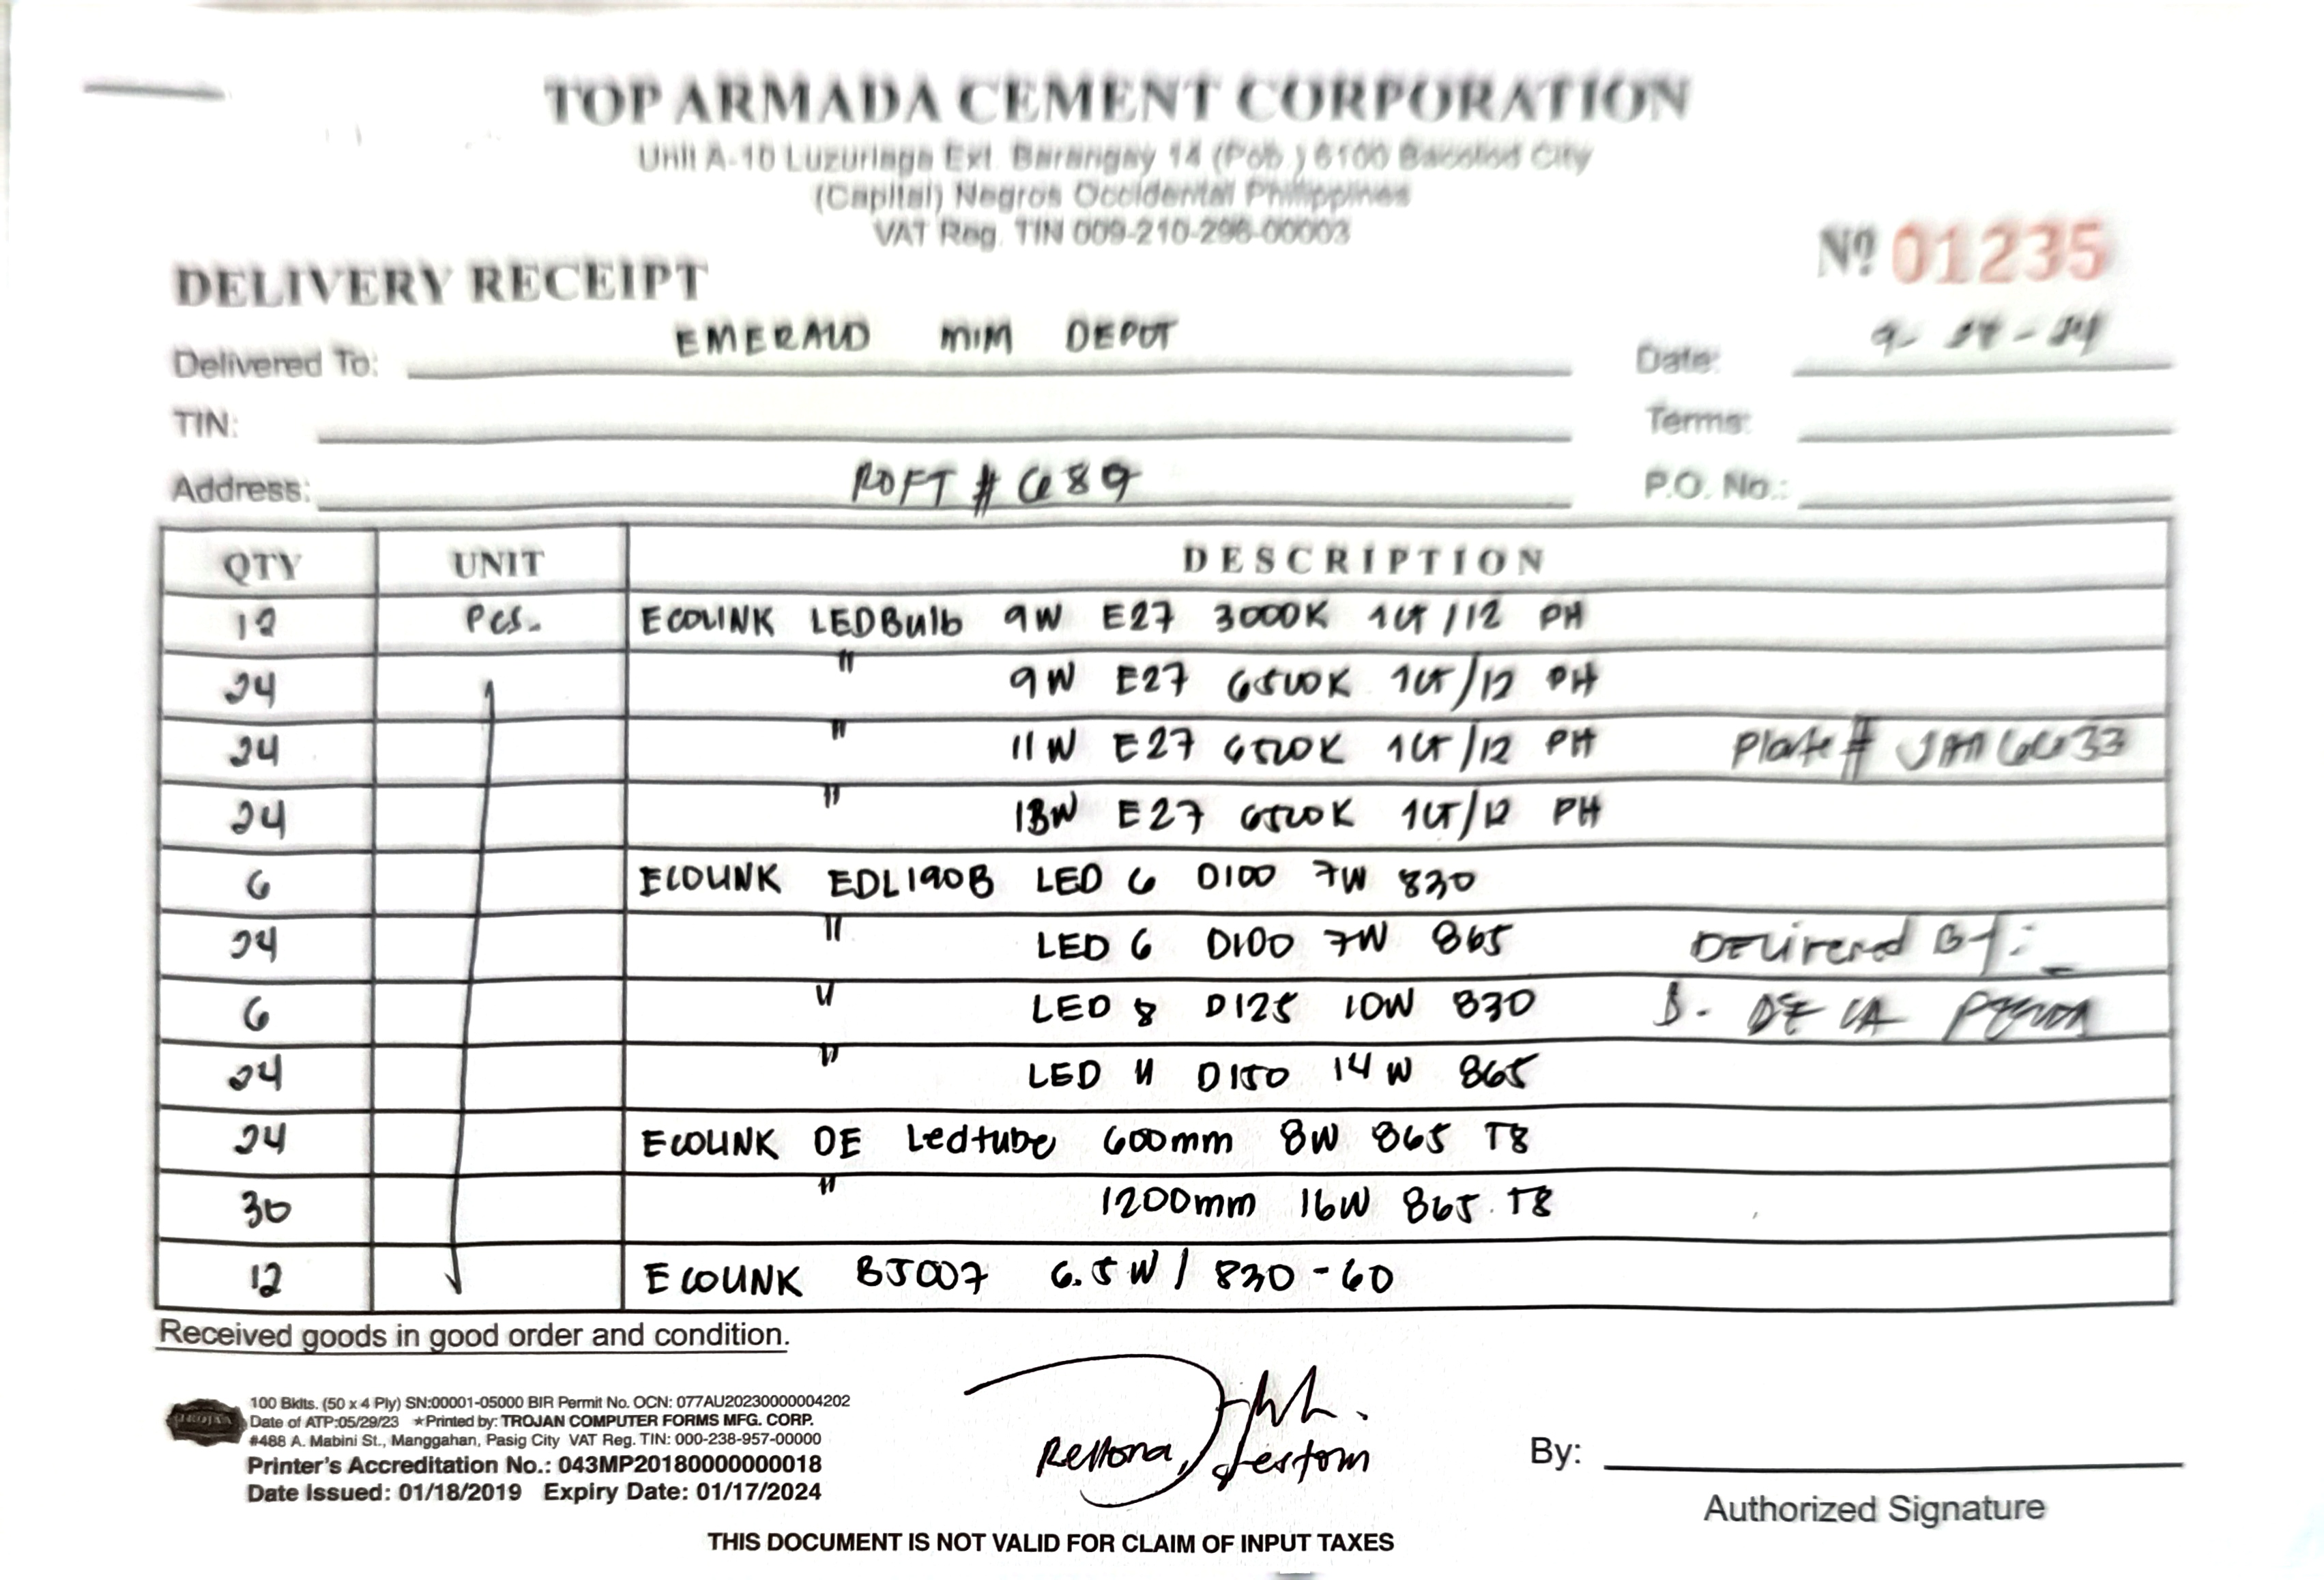 TOP ARMADA CEMENT CORPORATION
Unit A-10 Luzuriaga Ext. Barangay 14 (Pob.) 6100 Bacolod City
(Capital) Negros Occidental Philippines
VAT Reg. TIN 009-210-296-00003
Nº 01235
DELIVERY RECEIPT
Delivered To: EMERALD MIM DEPOT Date: 9-
TIN: Terms:
Address: ROFT # 689 P.O. No.:
QTY UNIT DESCRIPTION
12 Pcs. ECOLINK LEDBulb 9W E27 3000K 1CT/12 PH
24 " 9W E27 6500K 1CT/12 PH
24 " 11W E27 6500K 1CT/12 PH Plate #
24 " 13W E27 6500K 1CT/12 PH
6 ECOLINK EDL190B LED 6 D100 7W 830
24 " LED 6 D100 7W 865 Delivered By:
6 " LED 8 D125 10W 830 DE LA
24 " LED 11 D150 14W 865
24 ECOLINK DE Ledtube 600mm 8W 865 T8
30 " 1200mm 16W 865 T8
12 ECOLINK BJ007 6.5W / 830-60
Received goods in good order and condition.
TROJAN
100 Bklts. (50 x 4 Ply) SN:00001-05000 BIR Permit No. OCN: 077AU20230000004202
Date of ATP:05/29/23 ★Printed by: TROJAN COMPUTER FORMS MFG. CORP.
#488 A. Mabini St., Manggahan, Pasig City VAT Reg. TIN: 000-238-957-00000
Printer's Accreditation No.: 043MP20180000000018
Date Issued: 01/18/2019 Expiry Date: 01/17/2024
By:
Authorized Signature
THIS DOCUMENT IS NOT VALID FOR CLAIM OF INPUT TAXES